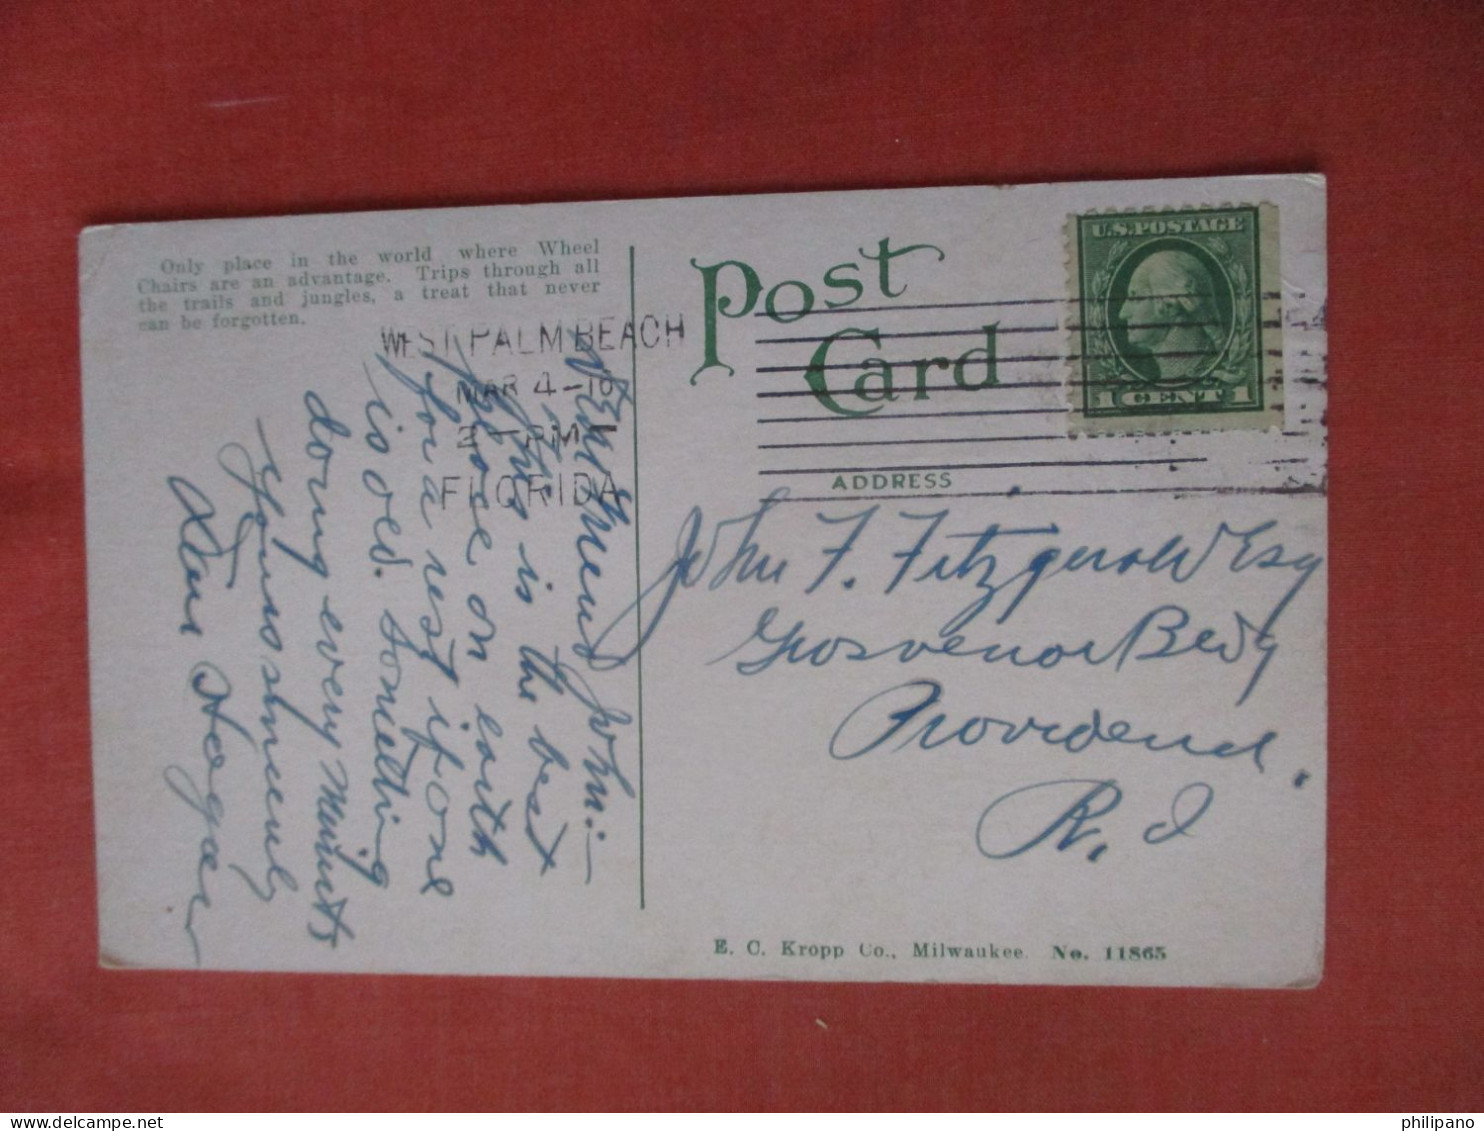 Only place in the world where Wheel
Chairs are an advantage. Trips through all
the trails and jungles, a treat that never
can be forgotten.
WEST PALM BEACH
MAR 4-16
2-PM
FLORIDA
Post
Card
U.S. POSTAGE
1 CENT 1
ADDRESS
John F. Fitzgerald Esq
Grosvenor Bldg
Providence.
R.I
Friend John:-
This is the best
place on earth
for a rest if one
is oed. Something
doing every minute
Yours
Hogan
E. C. Kropp Co., Milwaukee. No. 11865
philipano